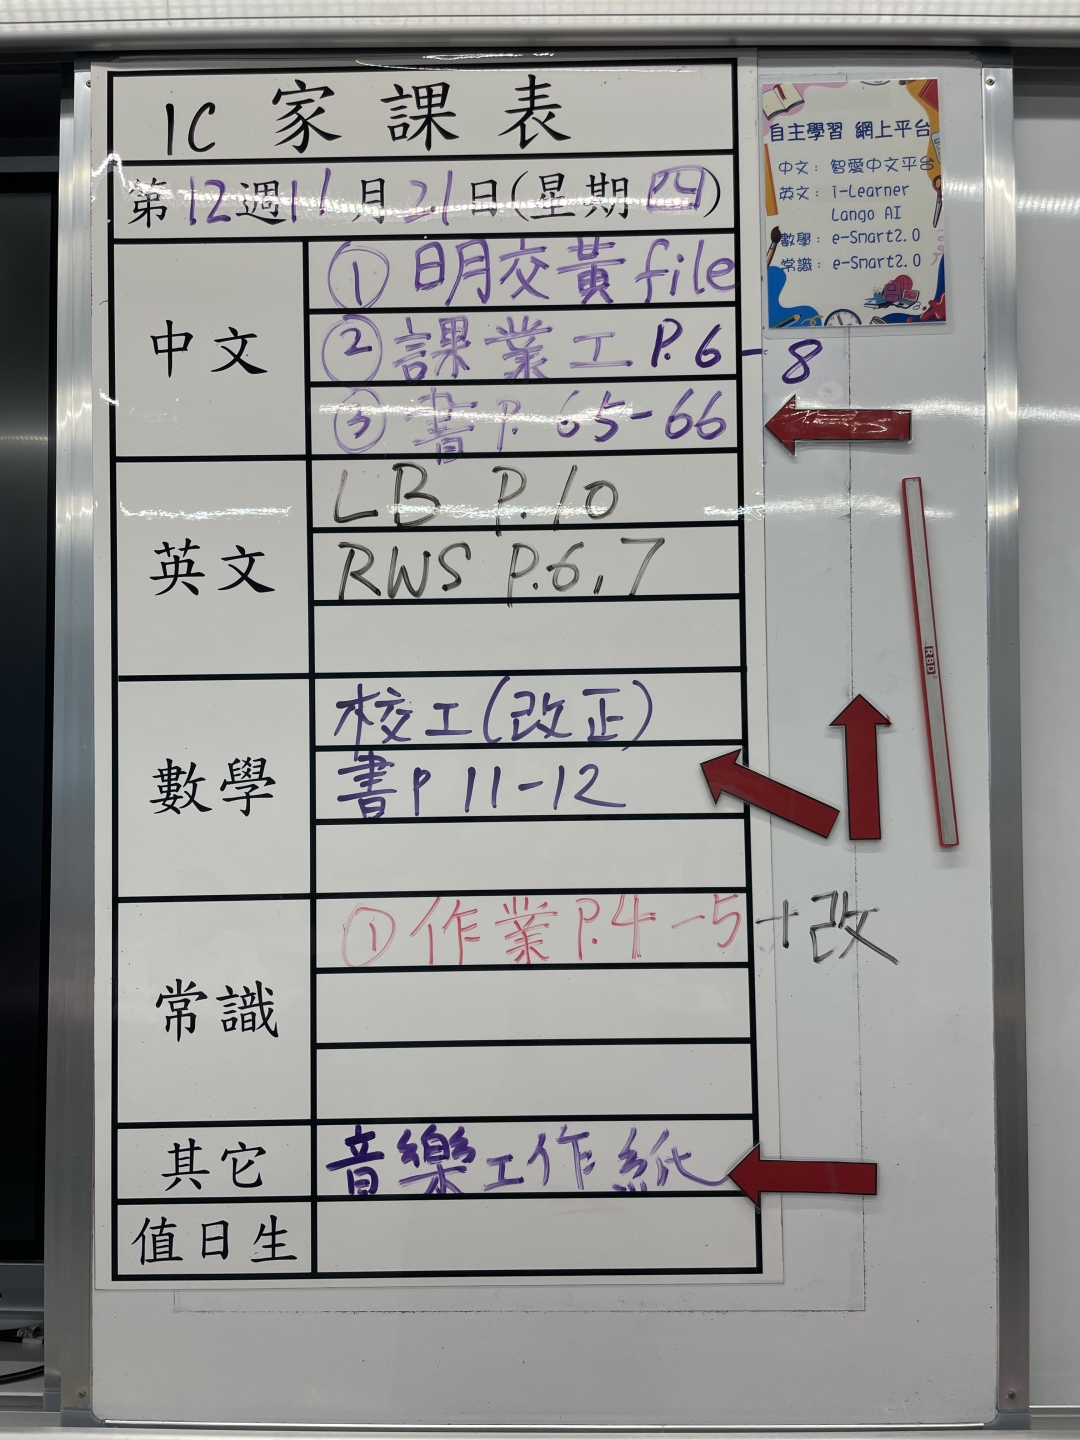 1C 家課表
第12週11月21日(星期四)
中文
① 明交黃file
② 課業工 P.6-8
③ 書 P. 65-66
英文
LB P.10
RWS P.6,7
數學
校工(改正)
書P 11-12
常識
① 作業 P.4-5+改
其它
音樂工作紙
值日生
自主學習 網上平台
中文：智愛中文平台
英文：i-Learner
Lango AI
數學：e-Smart2.0
常識：e-Smart2.0
RBD